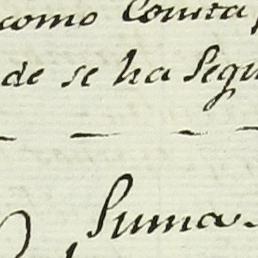 como Consta
de se ha Segu
Suma.